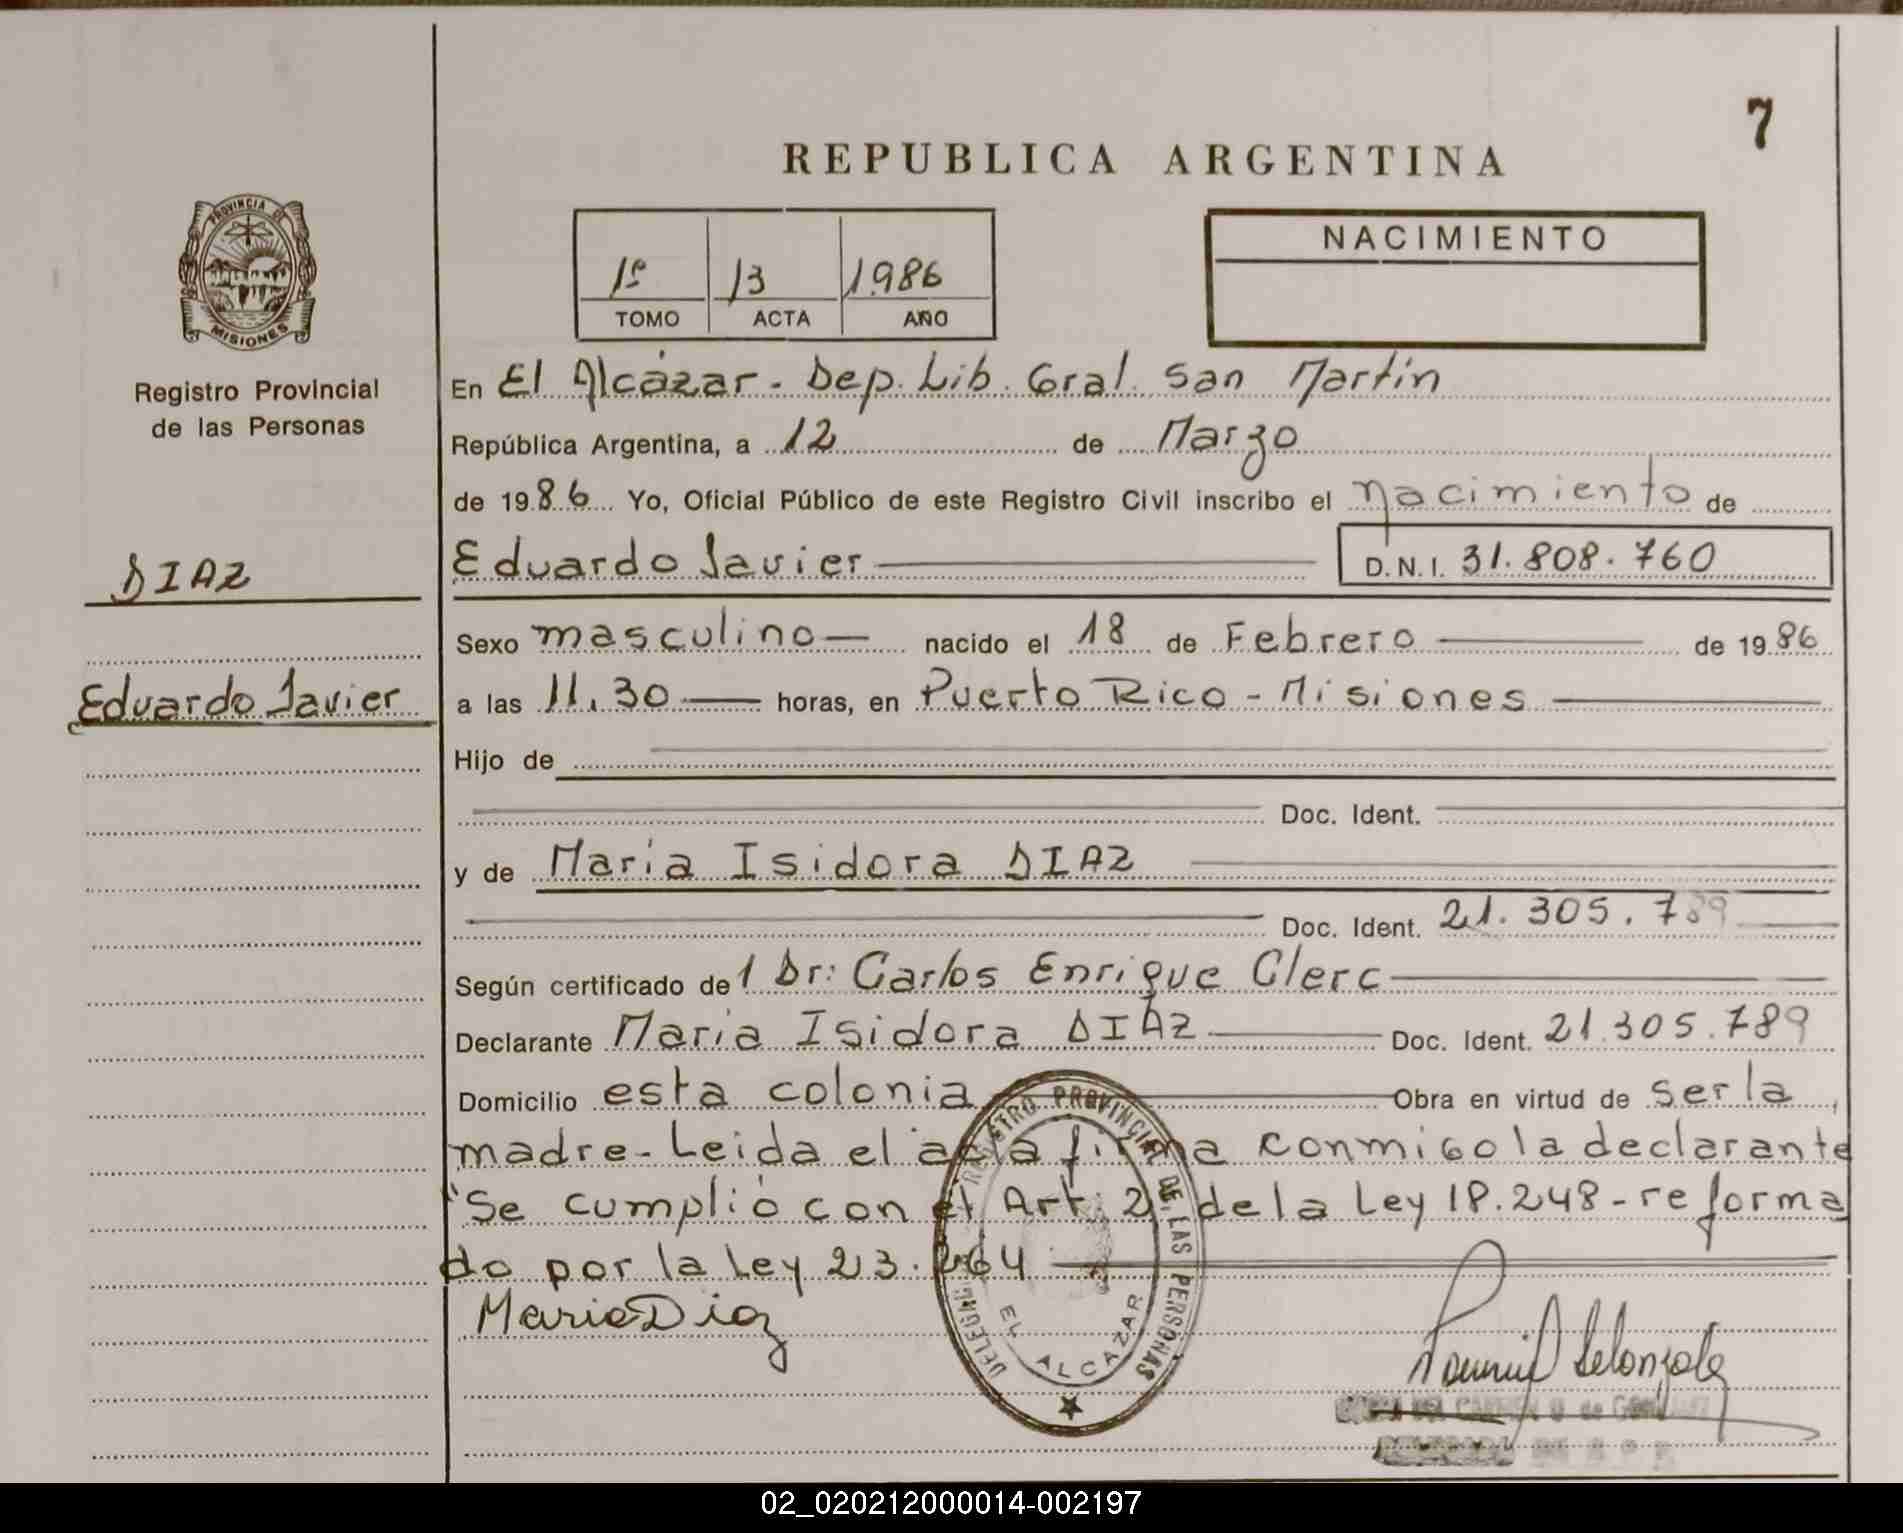 7
REPUBLICA ARGENTINA
PROVINCIA DE
MISIONES
Registro Provincial
de las Personas
1º 13 1986
TOMO ACTA AÑO
NACIMIENTO
En El Alcázar - Dep. Lib. Gral. San Martín
República Argentina, a 12 de Marzo
de 1986 Yo, Oficial Público de este Registro Civil inscribo el Nacimiento de
DIAZ
Eduardo Javier D.N.I. 31.808.760
Sexo masculino nacido el 18 de Febrero de 1986
Eduardo Javier
a las 11.30 horas, en Puerto Rico - Misiones
Hijo de
Doc. Ident.
y de María Isidora DIAZ
Doc. Ident. 21.305.789
Según certificado de 1 Dr: Carlos Enrique Clerc
Declarante María Isidora DIAZ Doc. Ident. 21.305.789
Domicilio esta colonia Obra en virtud de ser la
madre - Leida el acta firma conmigo la declarante
"Se cumplió con el Art. 2 de la Ley 18.248 - reforma
do por la Ley 23.264
Maria Diaz
REGISTRO PROVINCIAL DE LAS PERSONAS
EL ALCAZAR
02_020212000014-002197